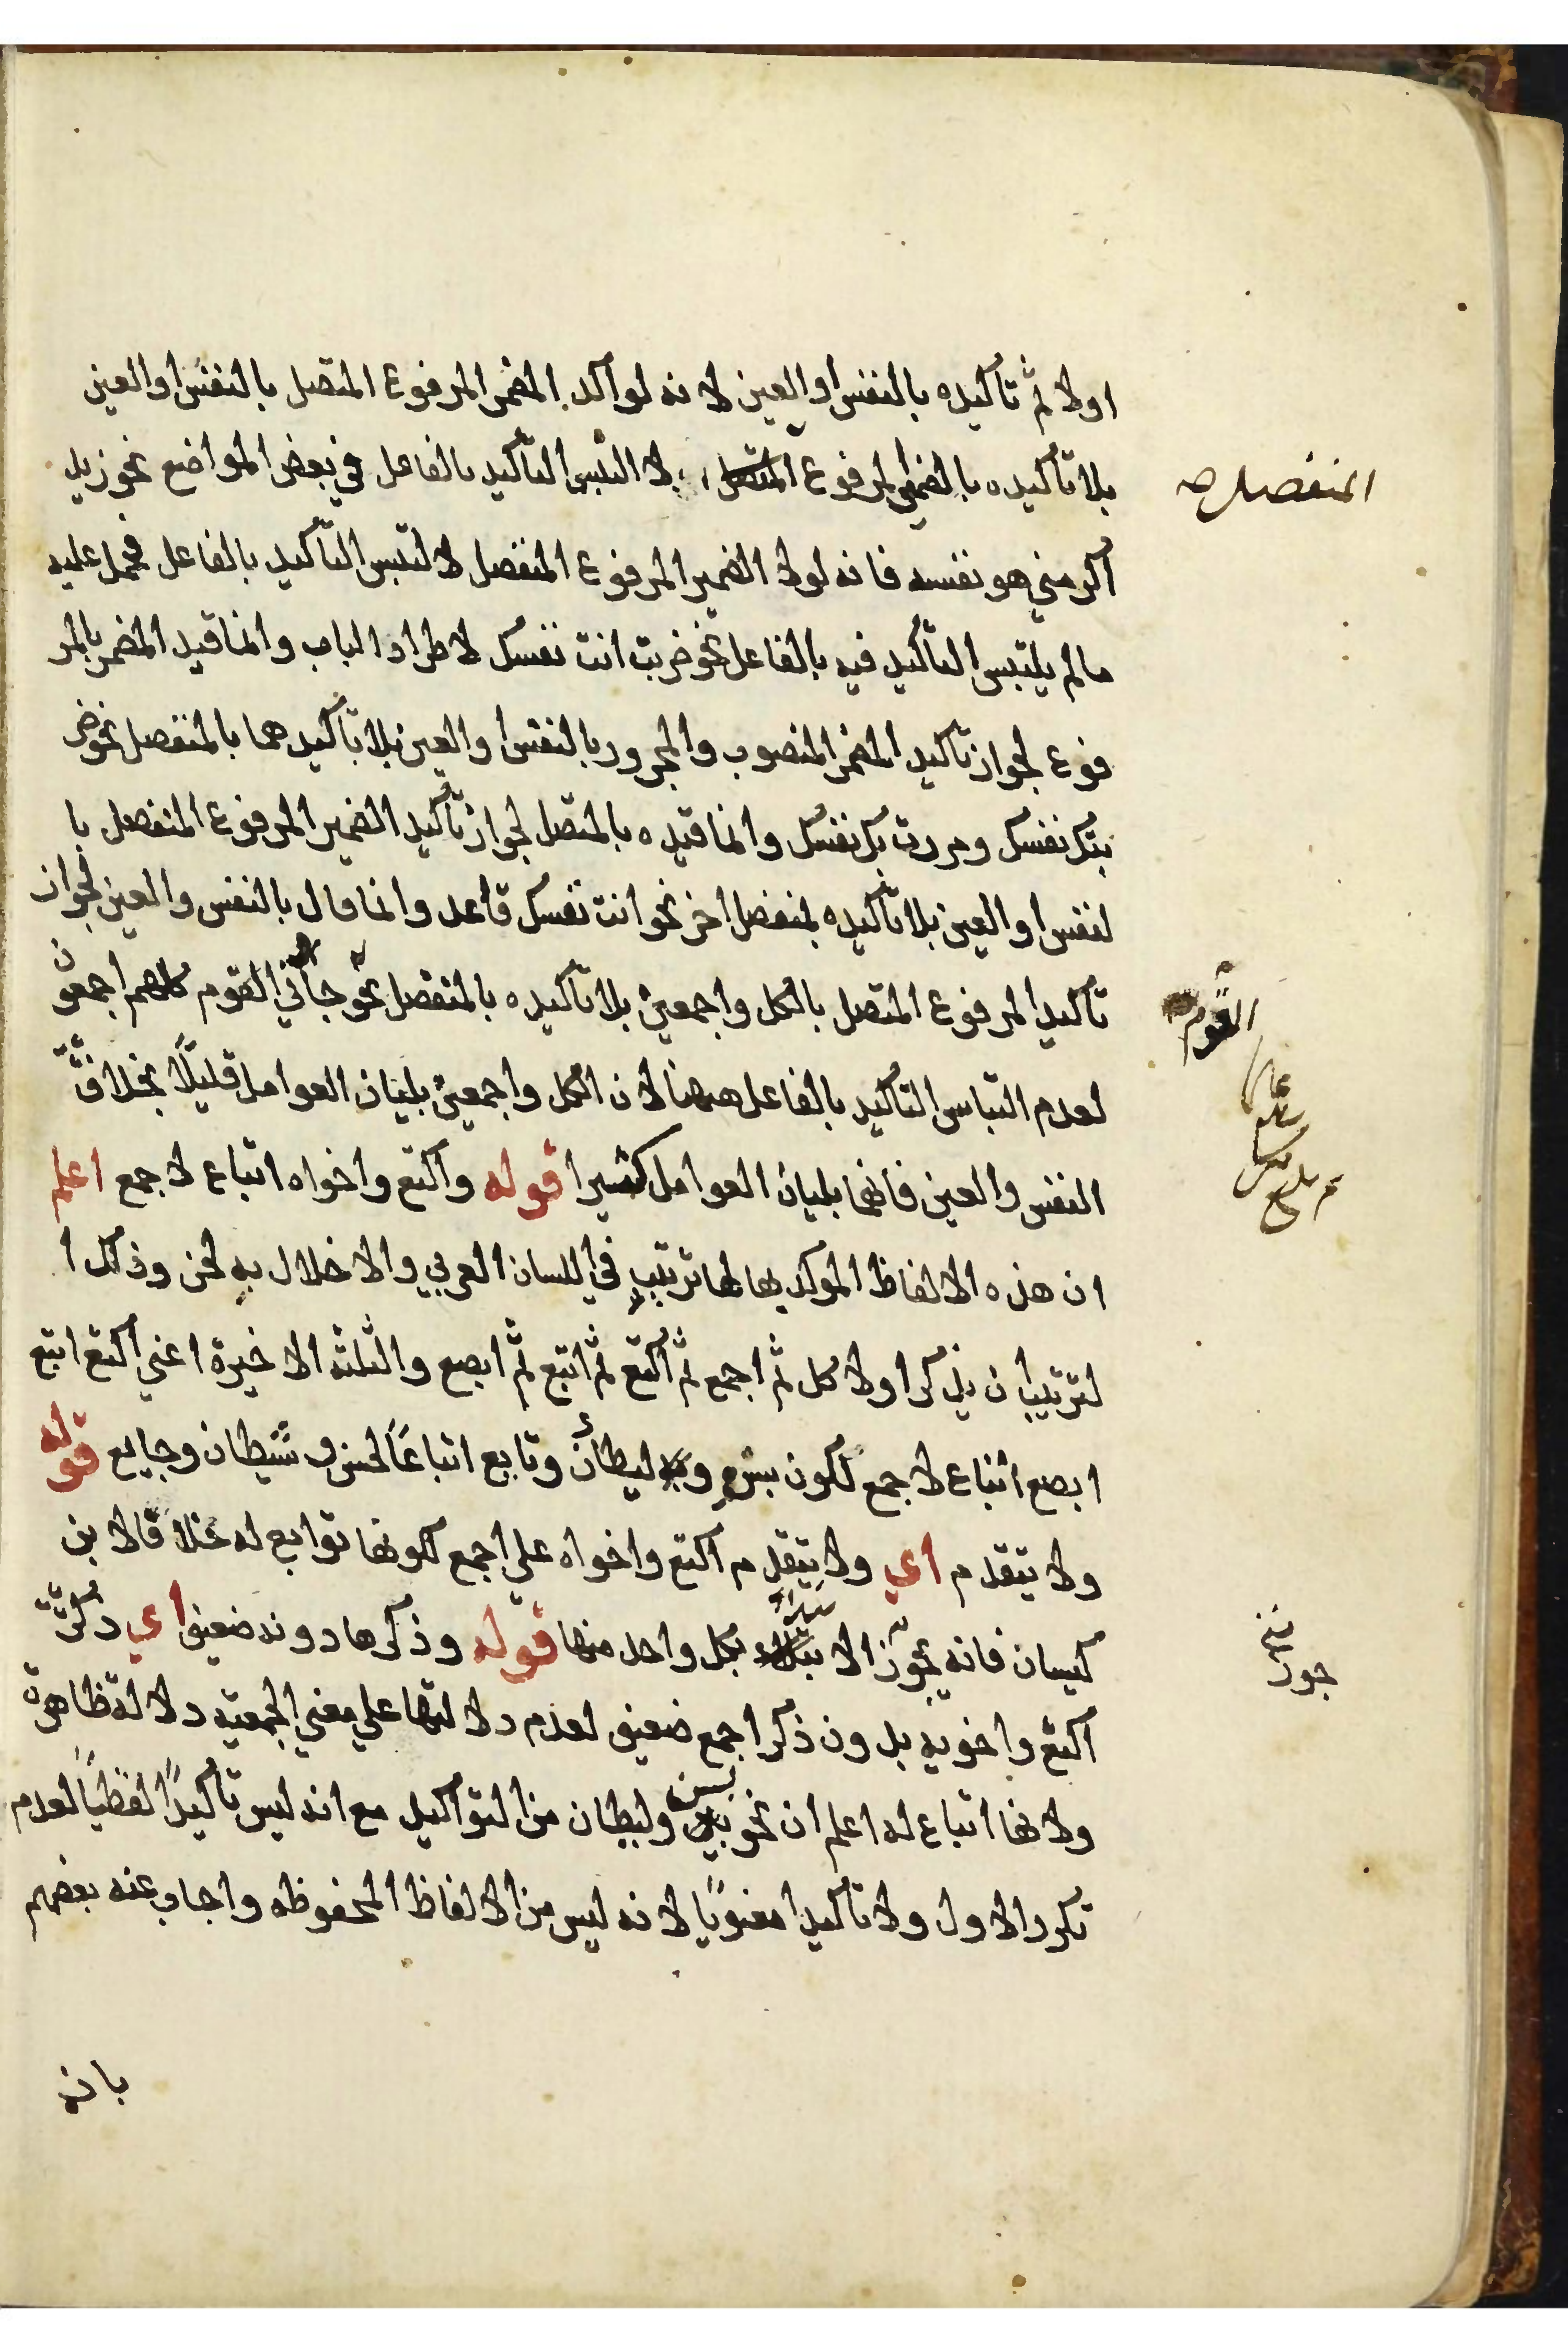 اولا ثم تاكيده بالنفس والعين لانه لو اكد المضمر المرفوع المتصل بالنفس او العين
بلا تاكيده بالضمير المرفوع المتصل لالتبس التاكيد بالفاعل في بعض المواضع نحو زيد
المنفصل صح
اكرمني هو نفسه فانه لولا الضمير المرفوع المنفصل لالتبس التاكيد بالفاعل فحمل عليه
مالم يلتبس التاكيد فيه بالفاعل نحو ضربت انت نفسك لاطراد الباب وانما قيد المضمر بالمر
فوع لجواز تاكيد المضمر المنصوب والمجرور بالنفس او العين بلا تاكيدهما بالمنفصل نحو ضر
بتك نفسك ومررت بك نفسك وانما قيده بالمتصل لجواز تاكيد الضمير المرفوع المنفصل با
لنفس او العين بلا تاكيده بمنفصل اخر نحو انت نفسك قاعد وانما قال بالنفس والعين لجواز
تاكيد المرفوع المتصل بالكل واجمعين بلا تاكيده بالمنفصل نحو جاني القوم كلهم اجمعون
القوم
لعدم التباس التاكيد بالفاعل ههنا لان الكل واجمعين يليان العوامل قليلا بخلاف
النفس والعين فانهما يليان العوامل كثيرا قوله واكتع واخواه اتباع لاجمع اعلم
ان هذه الالفاظ الموكد بها لها ترتيب في اللسان العربي والاخلال به لحن وذلك ا
لترتيب ان يذكر اولا كل ثم اجمع ثم اكتع ثم ابتع ثم ابصع والثلثه الاخيرة اعني اكتع ابتع
ابصع اتباع لاجمع لكون بسن وليطان وتابع اتباعا لحسن وشيطان وجايع قوله
ولا يتقدم اي ولا يتقدم اكتع واخواه علي اجمع لكونها توابع له خلافا لابن
كيسان فانه يجوز الابتداء بكل واحد منها قوله وذكرها دونه ضعيف اي ذكر
جوز
اكتع واخويه بدون ذكر اجمع ضعيف لعدم دلالتها علي معني الجمعيه دلالة ظاهرة
ولانها اتباع له اعلم ان نحو بسن وليطان من التواكيد مع انه ليس تاكيدا لفظيا لعدم
تكرر الاول ولا تاكيدا معنويا لانه ليس من الالفاظ المحفوظه واجاب عنه بعضهم
بانه